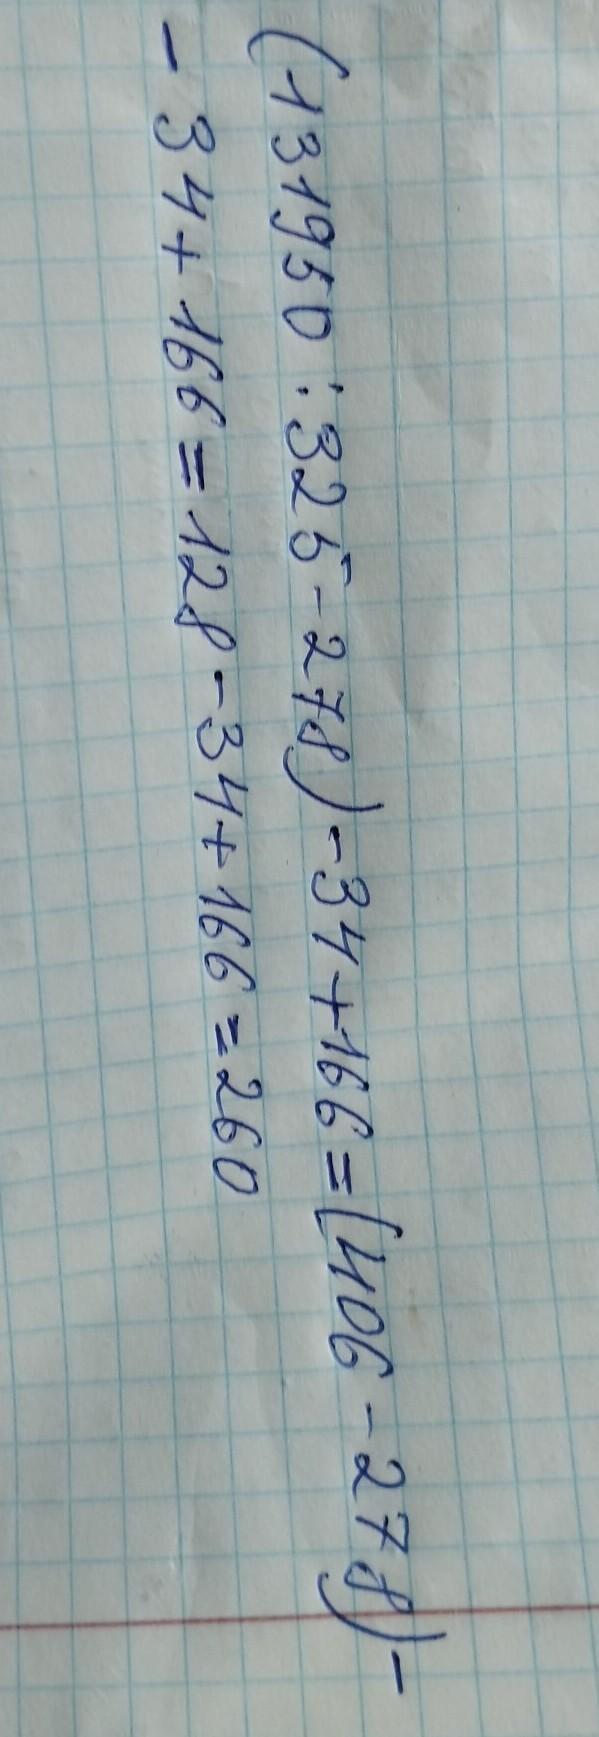 (131950 : 325 - 278) - 34 + 166 = (406 - 278) -
- 34 + 166 = 128 - 34 + 166 = 260